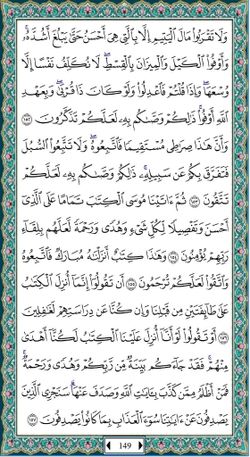 وَلَا تَقْرَبُوا۟ مَالَ ٱلْيَتِيمِ إِلَّا بِٱلَّتِى هِىَ أَحْسَنُ حَتَّىٰ يَبْلُغَ أَشُدَّهُۥ
وَأَوْفُوا۟ ٱلْكَيْلَ وَٱلْمِيزَانَ بِٱلْقِسْطِ لَا نُكَلِّفُ نَفْسًا إِلَّا
وُسْعَهَا وَإِذَا قُلْتُمْ فَٱعْدِلُوا۟ وَلَوْ كَانَ ذَا قُرْبَىٰ وَبِعَهْدِ
ٱللَّهِ أَوْفُوا۟ ذَٰلِكُمْ وَصَّىٰكُم بِهِۦ لَعَلَّكُمْ تَذَكَّرُونَ ١٥٢
وَأَنَّ هَٰذَا صِرَٰطِى مُسْتَقِيمًا فَٱتَّبِعُوهُ وَلَا تَتَّبِعُوا۟ ٱلسُّبُلَ
فَتَفَرَّقَ بِكُمْ عَن سَبِيلِهِۦ ذَٰلِكُمْ وَصَّىٰكُم بِهِۦ لَعَلَّكُمْ
تَتَّقُونَ ١٥٣ ثُمَّ ءَاتَيْنَا مُوسَى ٱلْكِتَٰبَ تَمَامًا عَلَى ٱلَّذِىٓ
أَحْسَنَ وَتَفْصِيلًا لِّكُلِّ شَىْءٍ وَهُدًى وَرَحْمَةً لَّعَلَّهُم بِلِقَآءِ
رَبِّهِمْ يُؤْمِنُونَ ١٥٤ وَهَٰذَا كِتَٰبٌ أَنزَلْنَٰهُ مُبَارَكٌ فَٱتَّبِعُوهُ
وَٱتَّقُوا۟ لَعَلَّكُمْ تُرْحَمُونَ ١٥٥ أَن تَقُولُوٓا۟ إِنَّمَآ أُنزِلَ ٱلْكِتَٰبُ
عَلَىٰ طَآئِفَتَيْنِ مِن قَبْلِنَا وَإِن كُنَّا عَن دِرَاسَتِهِمْ لَغَٰفِلِينَ
١٥٦ أَوْ تَقُولُوا۟ لَوْ أَنَّآ أُنزِلَ عَلَيْنَا ٱلْكِتَٰبُ لَكُنَّآ أَهْدَىٰ
مِنْهُمْ فَقَدْ جَآءَكُم بَيِّنَةٌ مِّن رَّبِّكُمْ وَهُدًى وَرَحْمَةٌ
فَمَنْ أَظْلَمُ مِمَّن كَذَّبَ بِـَٔايَٰتِ ٱللَّهِ وَصَدَفَ عَنْهَا سَنَجْزِى ٱلَّذِينَ
يَصْدِفُونَ عَنْ ءَايَٰتِنَا سُوٓءَ ٱلْعَذَابِ بِمَا كَانُوا۟ يَصْدِفُونَ ١٥٧
149